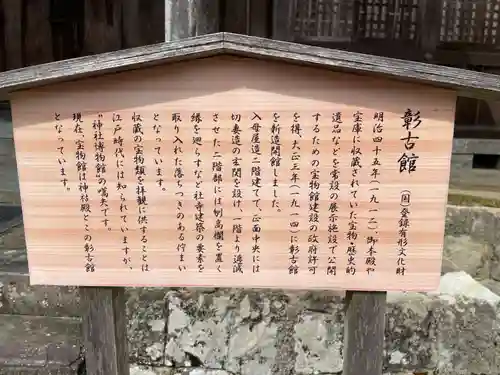 彰古館 (国 登録有形文化財)
明治四十五年(一九一二)、御本殿や
宝庫に収蔵されていた宝物・歴史的
遺品などを常設の展示施設で公開
するための宝物館建設の政府許可
を得、大正三年(一九一四)に彰古館
を新造開館しました。
入母屋造二階建てで、正面中央には
切妻造の玄関を設け、一階より逓減
させた二階部には刎高欄を置く
縁を廻らすなど社寺建築の要素を
取り入れた落ちつきのある佇まい
となっています。
収蔵の宝物類を拝観に供することは
江戸時代には知られていますが、
"神社博物館"の嚆矢です。
現在、宝物館は神祜殿とこの彰古館
となっています。